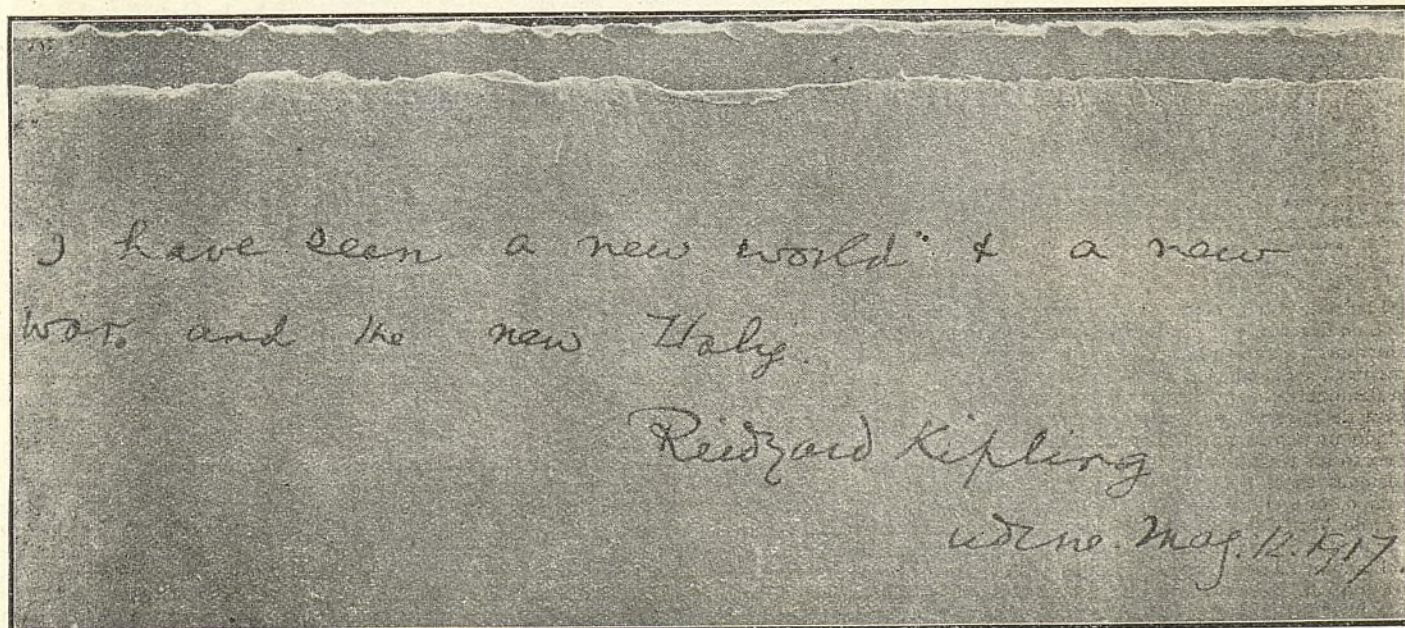 I have seen a new world & a new
war. and the new Italy.
Rudyard Kipling
Udine. May. 12. 1917.